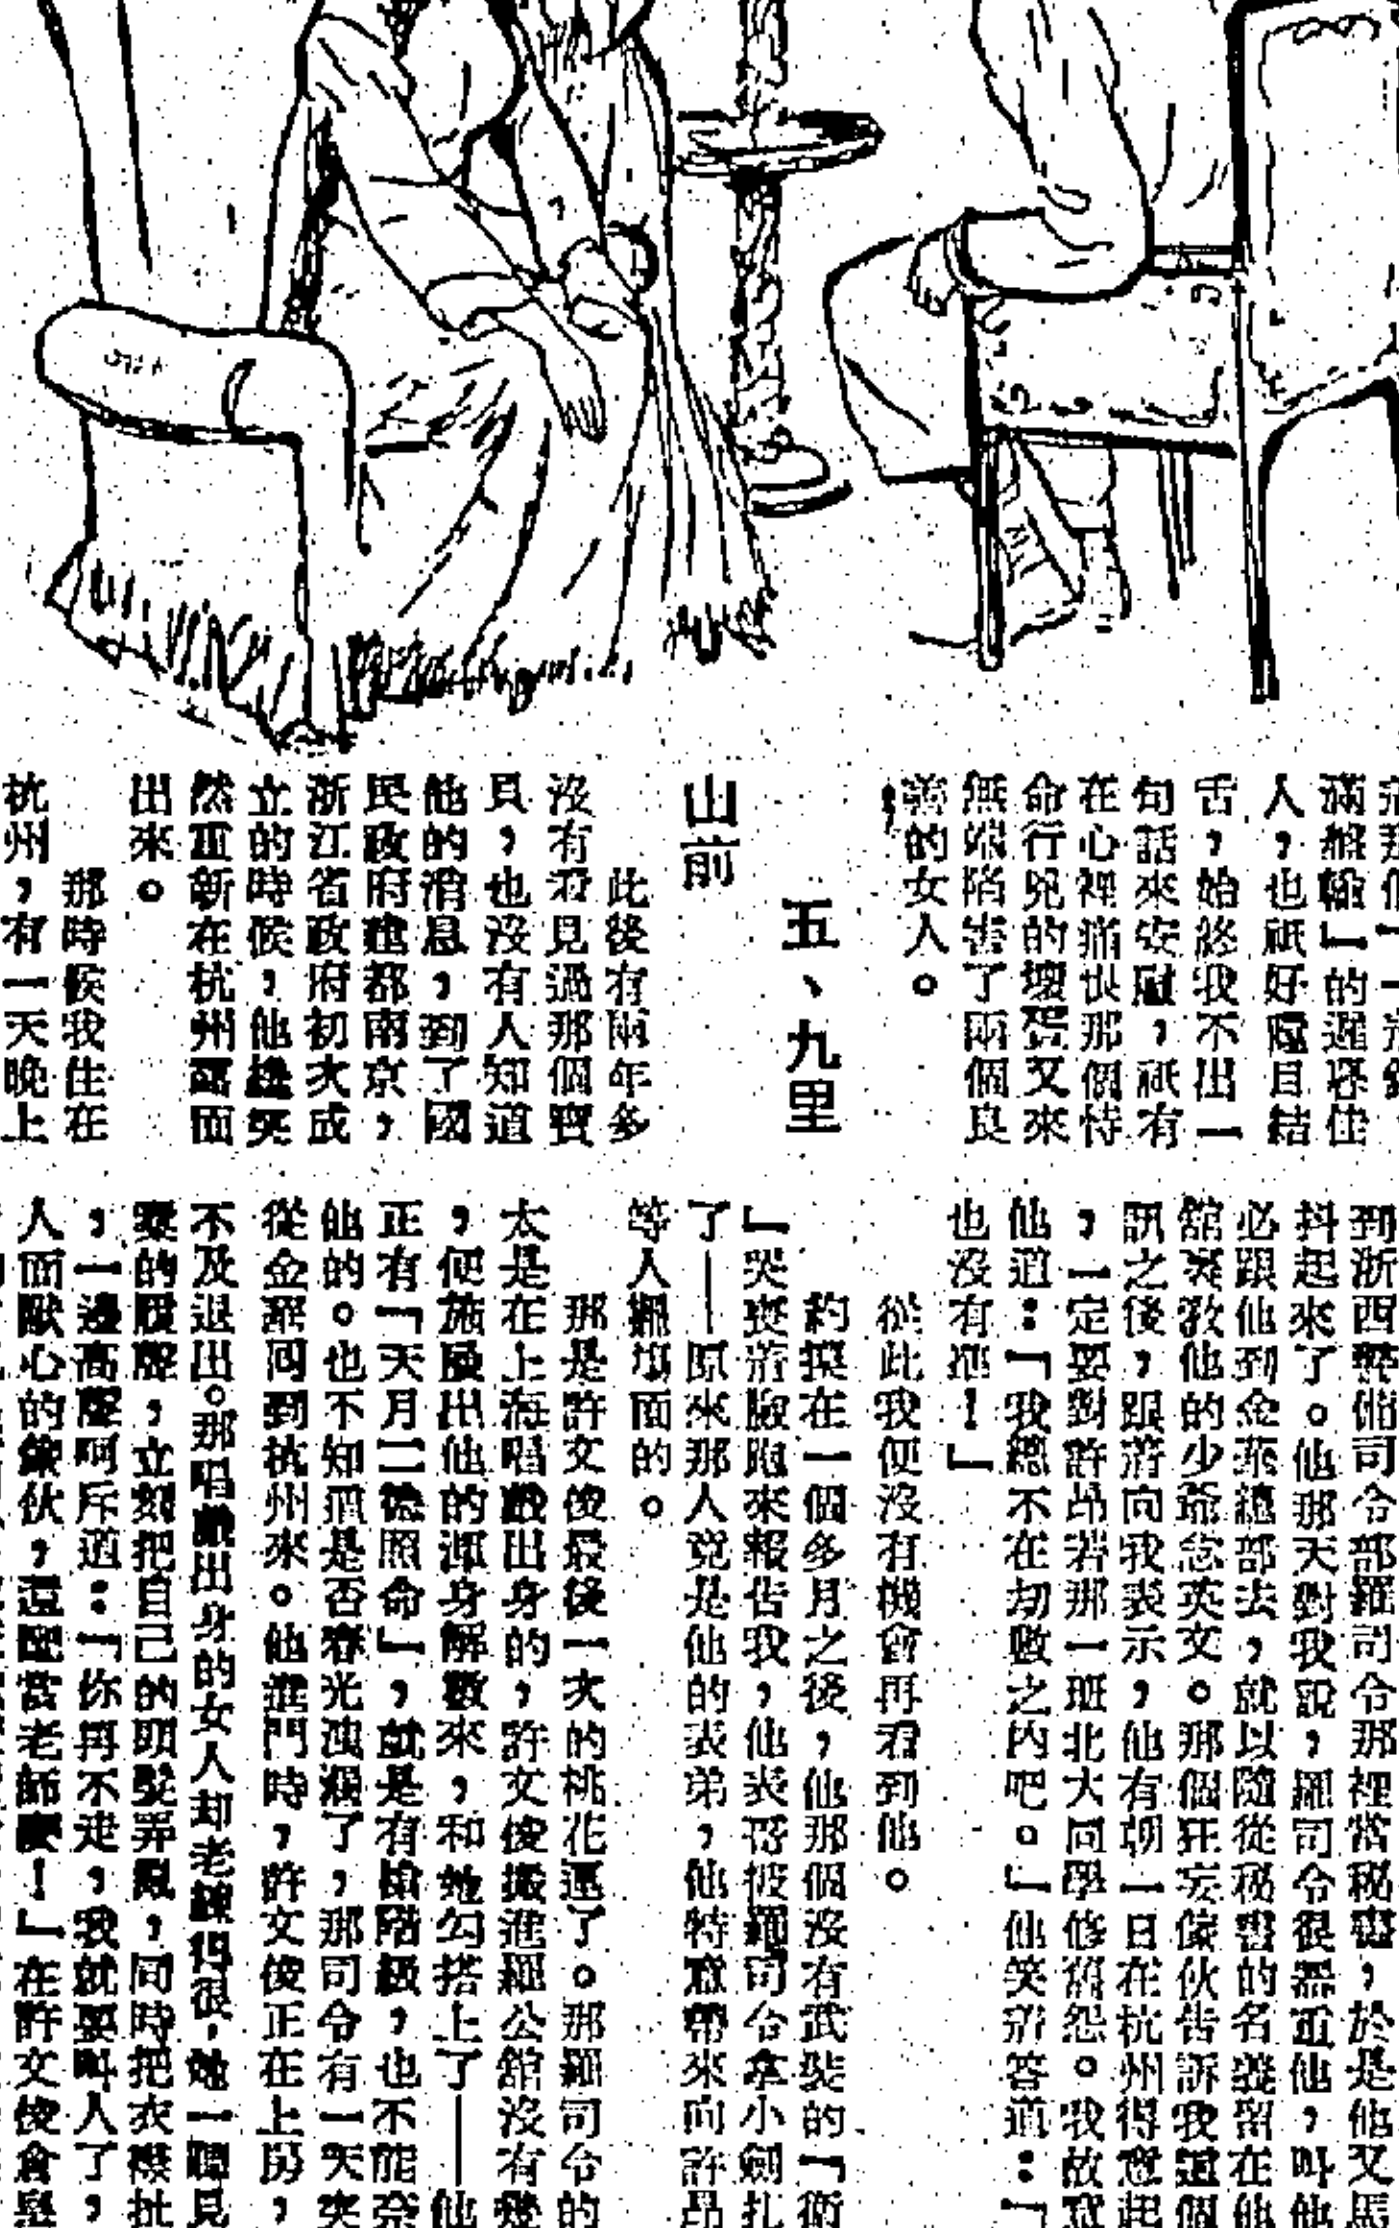 滿盤輸」的遲暮佳
人，也祇好瞪目結
舌，始終我不出一
句話來安慰，祇有
在心裡痛恨那個恃
命行兇的壞蛋又來
無端陷害了兩個良
善的女人。
五、九里
山前
此後有兩年多
沒有看見過那個寶
貝，也沒有人知道
他的消息，到了國
民政府建都南京，
浙江省政府初次成
立的時候，他纔突
然重新在杭州露面
出來。
那時候我住在
杭州，有一天晚上
到浙西警備司令部羅司令那裡當秘書，於是他又馬
抖起來了。他那天對我說，羅司令很器重他，叫他
必跟他到金華總部去，就以隨從秘書的名義留在他
舘裏教他的少爺念英文。那個狂妄傢伙告訴我這個
訊之後，跟着向我表示，他有朝一日在杭州得意起
，一定要對許昂若那一班北大同學修舊怨。我故意
他道：「我總不在刧數之内吧。」他笑着答道：「
也沒有準！」
從此我便沒有機會再看到他。
約莫在一個多月之後，他那個沒有武裝的「衛
」哭喪着臉跑來報告我，他表哥被羅司令拿小繩扎
了——原來那人竟是他的表弟，他特意帶來向許昂
等人綳塲面的。
那是許文俊最後一次的桃花運了。那羅司令的
太是在上海唱戲出身的，許文俊搬進羅公舘沒有幾
，便施展出他的渾身解數來，和她勾搭上了——他
正有「天月二德照命」，就是有槍階級，也不能奈
他的。也不知道是否春光洩漏了，那司令有一天突
從金華囘到杭州來。他進門時，許文俊正在上房，
不及退出。那唱戲出身的女人却老練得很，她一聽見
的履聲，立刻把自己的頭髮弄亂，同時把衣襟扯
，一邊高聲呵斥道：「你再不走，我就要叫人了，
人面獸心的傢伙，還配當老師麽！」在許文俊倉皇